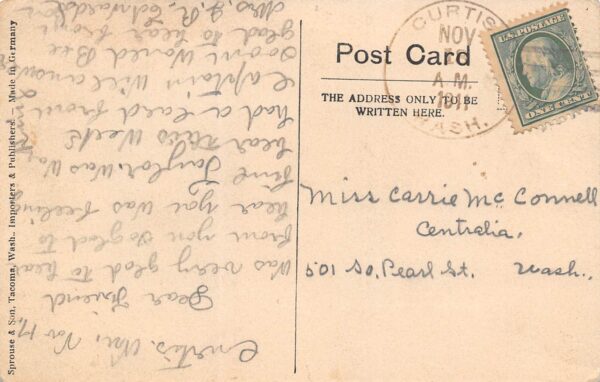 Sprouse & Son, Tacoma, Wash., Importers & Publishers. Made in Germany
Post Card
THE ADDRESS ONLY TO BE
WRITTEN HERE.
CURTIS
NOV
A.M.
1911
WASH.
U.S. POSTAGE
ONE CENT
Miss Carrie McConnell
Centralia,
501 So. Pearl St. Wash.,
Curtis, Nov 17,
Dear Friend
Was very glad to hear
from you so glad to
hear you was feeling
fine Taylor. Was Way
hear this Week
had a card from
Captain Will and
soon Would Be
glad to hear from
Mrs. J. R.